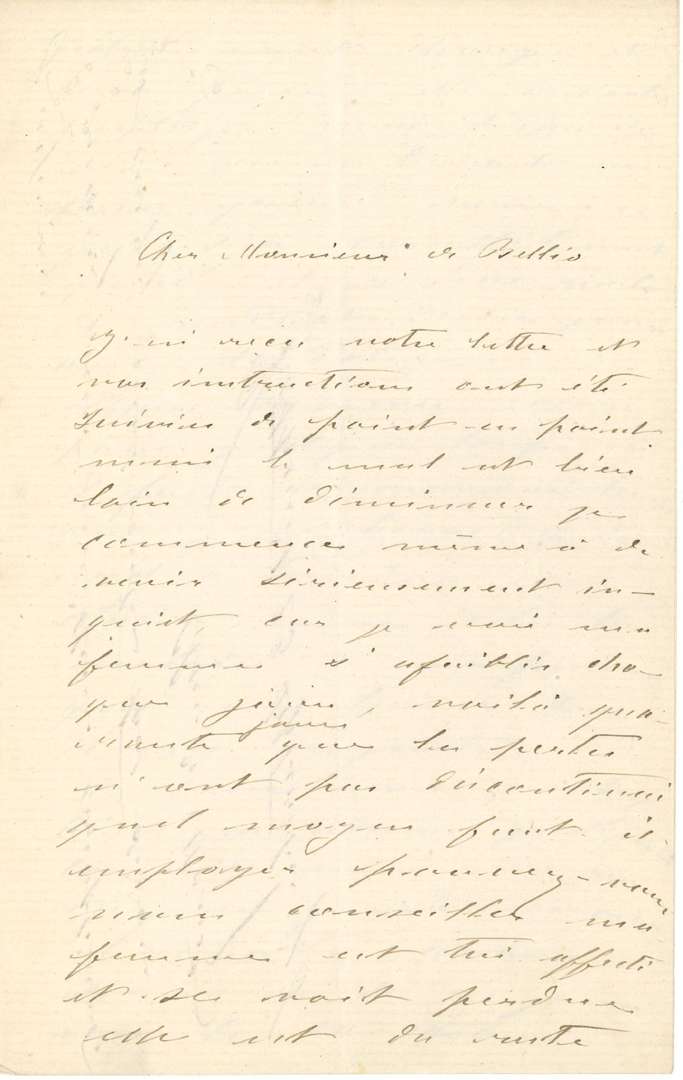 Cher Monsieur de Bellio
J'ai reçu votre lettre et
vos instructions ont été
suivies de point en point
mais le mal est bien
loin de diminuer je
commence même à de
venir sérieusement in-
quiet, car je vois ma
femme s'afaiblir cha-
que jour, voilà qua-
rante jours que les pertes
n'ont pas discontinué
quel moyen faut il
employer pouvez-vous
nous conseiller ma
femme est très affectée
et se voit perdue
elle est du reste